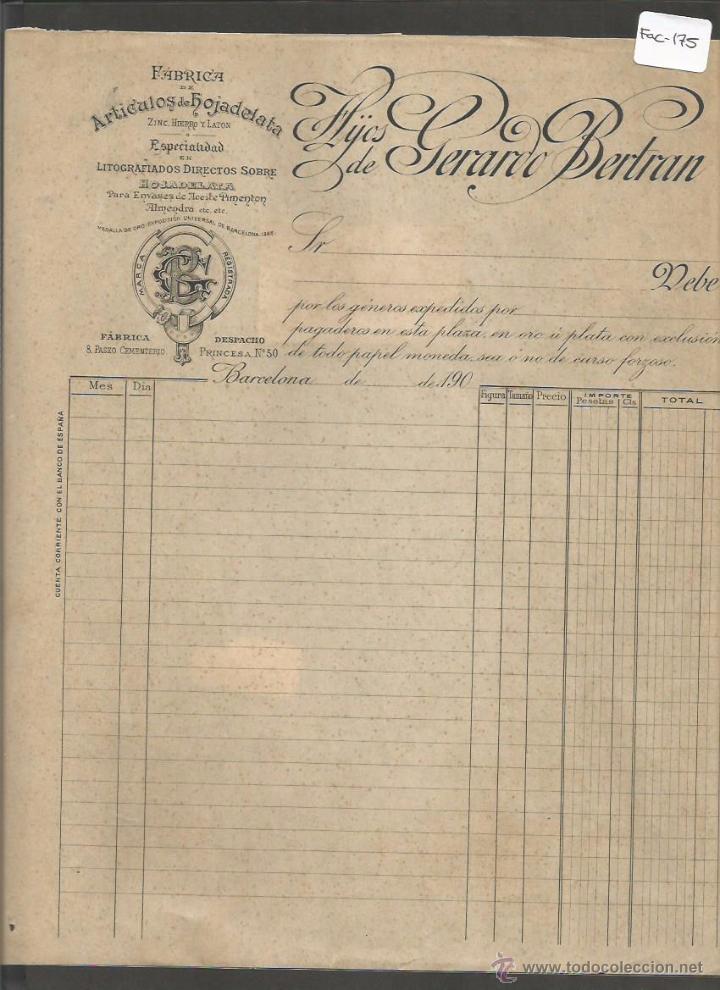 Fac-175
FÁBRICA
DE
Artículos de hojadelata
ZINC, HIERRO Y LATON
Especialidad
EN
LITOGRAFIADOS DIRECTOS SOBRE
HOJADELATA
Para Envases de Aceite Pimenton
Almendra etc. etc.
MEDALLA DE ORO EXPOSICIÓN UNIVERSAL DE BARCELONA 1888
MARCA REGISTRADA
FÁBRICA
8, PASEO CEMENTERIO
DESPACHO
PRINCESA, Nº 50
Hijos de Gerardo Bertran
Sr
Debe
por los géneros expedidos por
pagaderos en esta plaza, en oro ú plata con exclusión
de todo papel moneda, sea ó no de curso forzoso.
Barcelona de de 190
Mes Dia Figura Tamaño Precio IMPORTE TOTAL
Pesetas Cts
CUENTA CORRIENTE CON EL BANCO DE ESPAÑA
© www.todocoleccion.net